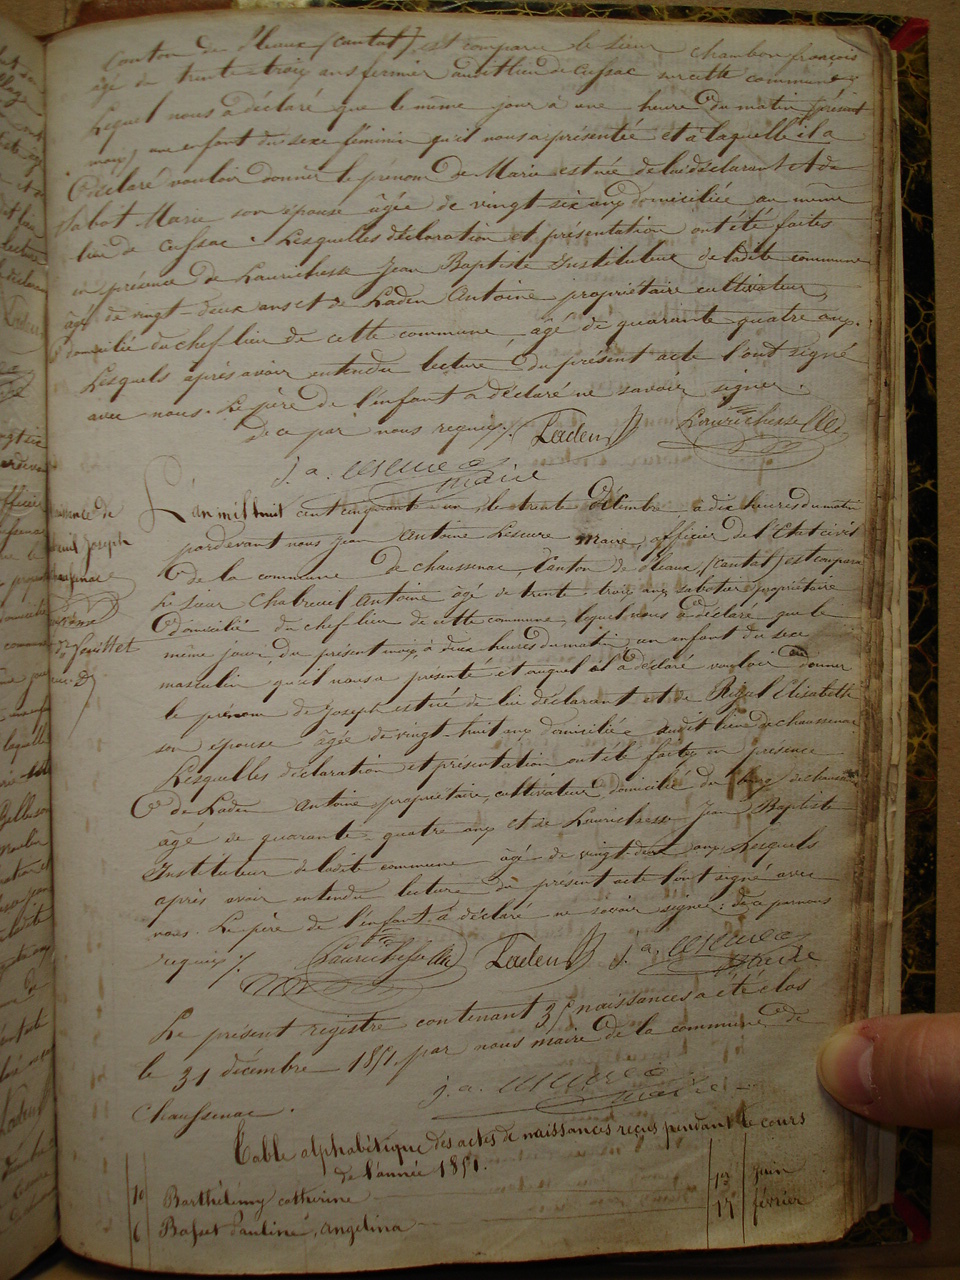 Canton de Pleaux (Cantal) est comparu le sieur Chambon françois
âgé de trente-trois ans fermier audit lieu de Cussac sur cette commune
Lequel nous a déclaré que le même jour à une heure du matin (présent
mois) une enfant du sexe féminin qu'il nous a présentée et à laquelle il a
déclaré vouloir donner le prénom de Marie est née de lui déclarant et de
Marie son épouse âgée de vingt six ans domiciliée au même
lieu de Cussac. Lesquelles déclaration et présentation ont été faites
en présence de Laurichesse Jean Baptiste Instituteur de ladite commune
âgé de vingt-deux ans et de Laden Antoine propriétaire cultivateur,
domicilié du chef lieu de cette commune âgé de quarante quatre ans.
Lesquels après avoir entendu lecture du présent acte l'ont signé
avec nous. Le père de l'enfant a déclaré ne savoir signer.
de ce par nous requis./. Laden Laurichesse
j. a. Lescure maire
naissance de
Joseph
chaussenac
L'an mil huit cent cinquante-un le trente décembre à dix heures du matin
pardevant nous Jean Antoine Lescure maire, officier de l'Etat civil
de la commune de chaussenac, Canton de Pleaux, (Cantal) est comparu
Le sieur Chabreuil Antoine âgé de trente-trois ans sabotier propriétaire
domicilié du chef lieu de cette commune, lequel nous a déclaré que le
même jour, du présent mois, à deux heures du matin, un enfant du sexe
masculin qu'il nous a présenté et auquel il a déclaré vouloir donner
le prénom de Joseph est né de lui déclarant et de Rigal Elisabeth
son épouse âgée de vingt-huit ans domiciliée audit lieu de chaussenac
Lesquelles déclaration et présentation ont été faites en présence
de Laden Antoine propriétaire, cultivateur domicilié du bourg de chaussenac
âgé de quarante-quatre ans et de Laurichesse Jean Baptiste
Instituteur de ladite commune âgé de vingt-deux ans Lesquels
après avoir entendu lecture du présent acte l'ont signé avec
nous. Le père de l'enfant a déclaré ne savoir signer: de ce par nous
requis ./. Laurichesse Laden j. a. Lescure maire
Le présent registre contenant naissances a été clos
le 31 décembre 1851, par nous maire de la commune de
Chaussenac. j. a. Lescure maire
Table alphabétique des actes de naissances reçus pendant le cours
de l'année 1851.
10 Barthélémy catherine juin
6 Pauline, angelina février